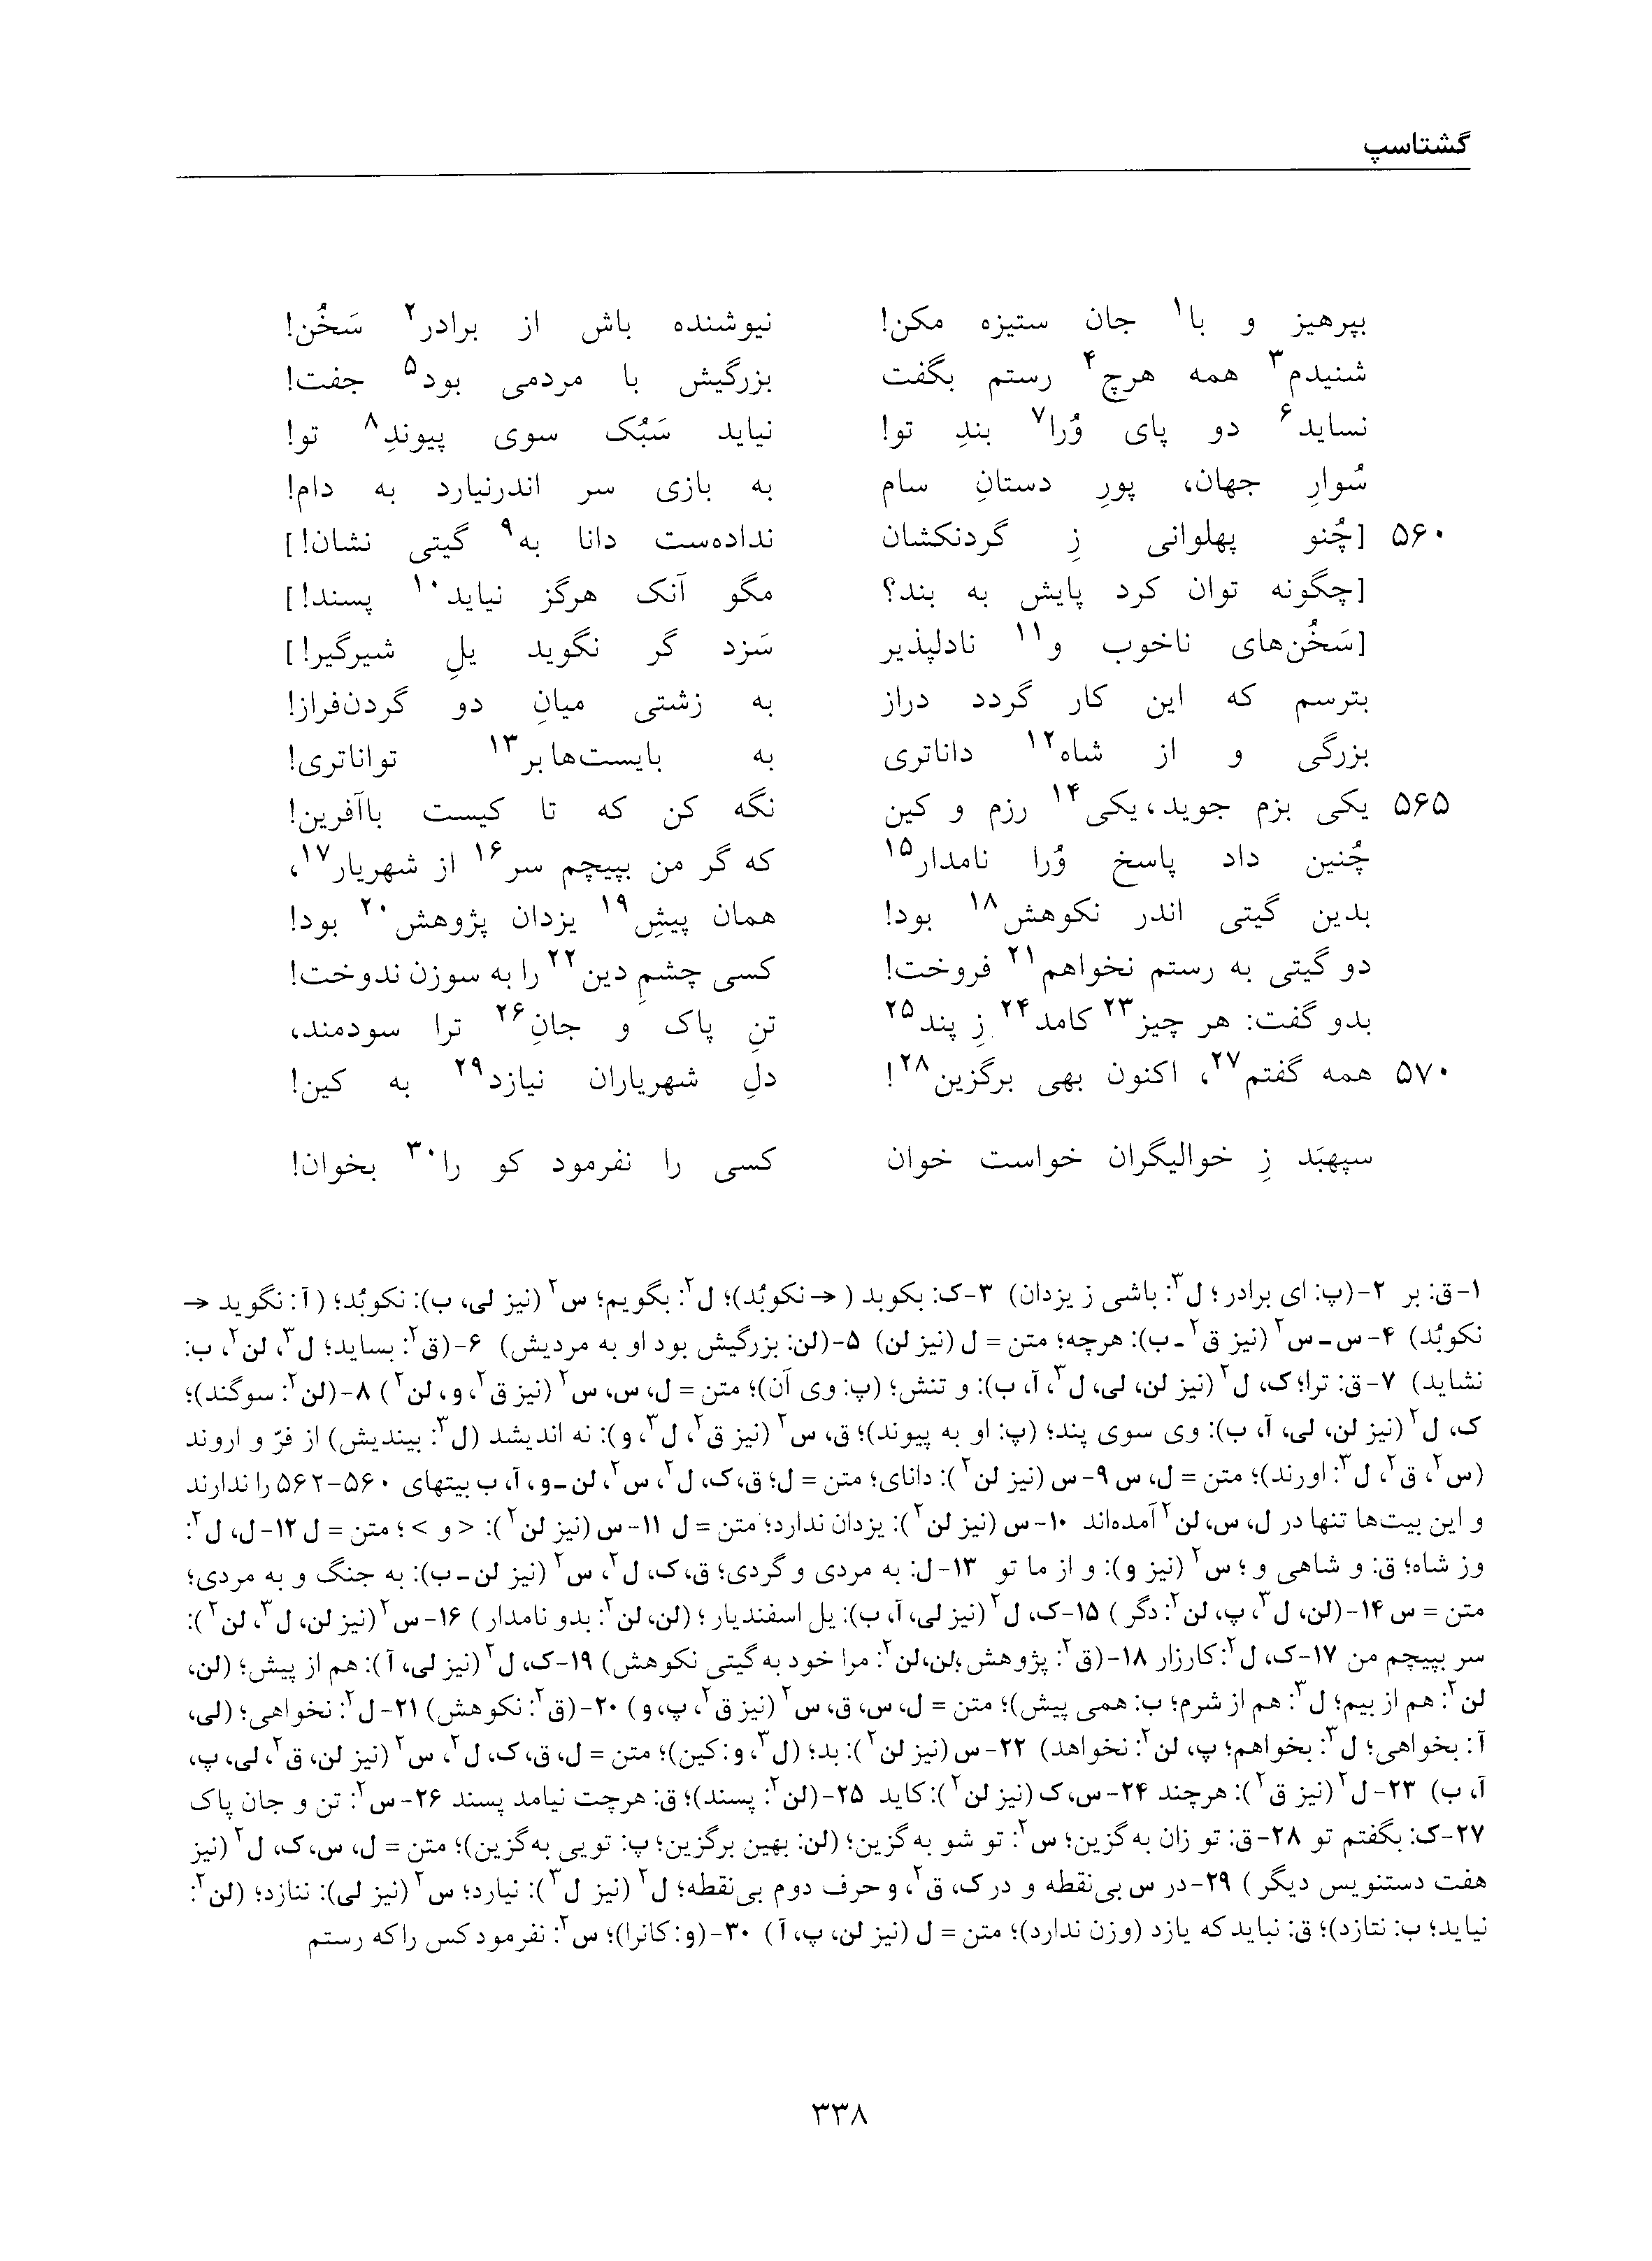 گشتاسپ
بپرهیز و با۱ جان ستیزه مکن! نیوشنده باش از برادر۲ سَخُن!
شنیدم۳ همه هرچ۴ رستم بگفت بزرگیش با مردمی بود۵ جفت!
نساید۶ دو پای وُرا۷ بندِ تو! نیاید سَبُک سوی پیوندِ۸ تو!
سُوارِ جهان، پورِ دستانِ سام به بازی سر اندرنیارد به دام!
۵۶۰ [چُنو پهلوانی زِ گردنکشان نداده‌ست دانا به۹ گیتی نشان!]
[چگونه توان کرد پایش به بند؟ مگو آنک هرگز نیاید۱۰ پسند!]
[سَخُن‌های ناخوب و۱۱ نادلپذیر سَزد گر نگوید یلِ شیرگیر!]
بترسم که این کار گردد دراز به زشتی میانِ دو گردن‌فراز!
بزرگی و از شاه۱۲ داناتری به بایست‌ها بر۱۳ تواناتری!
۵۶۵ یکی بزم جوید، یکی۱۴ رزم و کین نگه کن که تا کیست باآفرین!
چُنین داد پاسخ وُرا نامدار۱۵ که گر من بپیچم سر۱۶ از شهریار۱۷،
بدین گیتی اندر نکوهش۱۸ بود! همان پیشِ۱۹ یزدان پژوهش۲۰ بود!
دو گیتی به رستم نخواهم۲۱ فروخت! کسی چشمِ دین۲۲ را به سوزن ندوخت!
بدو گفت: هر چیز۲۳ کامد۲۴ زِ پند۲۵ تنِ پاک و جانِ۲۶ ترا سودمند،
۵۷۰ همه گفتم۲۷، اکنون بهی برگزین۲۸! دلِ شهریاران نیازد۲۹ به کین!
سپهبَد زِ خوالیگران خواست خوان کسی را نفرمود کو را۳۰ بخوان!
۱-ق: بر ۲-(پ: ای برادر؛ ل۳: باشی ز یزدان) ۳-ک: بکوبد (→ نکوبُد)؛ ل۲: بگویم؛ س۲ (نیز لی، ب): نکوبُد؛ (آ: نگوید →
نکوبُد) ۴-س-س۲ (نیز ق۲-ب): هرچه؛ متن = ل (نیز لن) ۵-(لن: بزرگیش بود او به مردیش) ۶-(ق۲: بساید؛ ل۳، لن۲، ب:
نشاید) ۷-ق: ترا؛ ک، ل۲ (نیز لن، لی، ل۳، آ، ب): و تنش؛ (پ: وی آن)؛ متن = ل، س، س۲ (نیز ق۲، و، لن۲) ۸-(لن۲: سوگند)؛
ک، ل۲ (نیز لن، لی، آ، ب): وی سوی پند؛ (پ: او به پیوند)؛ ق، س۲ (نیز ق۲، ل۳، و): نه اندیشد (ل۳: بیندیش) از فرّ و اروند
(س۲، ق۲، ل۳: اورند)؛ متن = ل، س ۹-س (نیز لن۲): دانای؛ متن = ل؛ ق، ک، ل۲، س۲، لن-و، آ، ب بیتهای ۵۶۰-۵۶۲ را ندارند
و این بیت‌ها تنها در ل، س، لن۲ آمده‌اند ۱۰-س (نیز لن۲): یزدان ندارد؛ متن = ل ۱۱-س (نیز لن۲): <و>؛ متن = ل ۱۲-ل، ل۲:
وز شاه؛ ق: و شاهی و؛ س۲ (نیز و): و از ما تو ۱۳-ل: به مردی و گردی؛ ق، ک، ل۲، س۲ (نیز لن-ب): به جنگ و به مردی؛
متن = س ۱۴-(لن، ل۳، پ، لن۲: دگر) ۱۵-ک، ل۲ (نیز لی، آ، ب): یل اسفندیار؛ (لن، لن۲: بدو نامدار) ۱۶-س۲ (نیز لن، ل۳، لن۲):
سر بپیچم من ۱۷-ک، ل۲: کارزار ۱۸-(ق۲: پژوهش؛ لن، لن۲: مرا خود به گیتی نکوهش) ۱۹-ک، ل۲ (نیز لی، آ): هم از پیش؛ (لن،
لن۲: هم از بیم؛ ل۳: هم از شرم؛ ب: همی پیش)؛ متن = ل، س، ق، س۲ (نیز ق۲، پ، و) ۲۰-(ق۲: نکوهش) ۲۱-ل۲: نخواهی؛ (لی،
آ: بخواهی؛ ل۳: بخواهم؛ پ، لن۲: نخواهد) ۲۲-س (نیز لن۲): بد؛ (ل۳، و: کین)؛ متن = ل، ق، ک، ل۲، س۲ (نیز لن، ق۲، لی، پ،
آ، ب) ۲۳-ل۲ (نیز ق۲): هرچند ۲۴-س، ک (نیز لن۲): کاید ۲۵-(لن۲: پسند)؛ ق: هرچت نیامد پسند ۲۶-س۲: تن و جان پاک
۲۷-ک: بگفتم تو ۲۸-ق: تو زان به گزین؛ س۲: تو شو به گزین؛ (لن: بهین برگزین؛ پ: تویی به‌گزین)؛ متن = ل، س، ک، ل۲ (نیز
هفت دستنویس دیگر) ۲۹-در س بی‌نقطه و در ک، ق۲، و حرف دوم بی‌نقطه؛ ل۲ (نیز ل۳): نیارد؛ س۲ (نیز لی): ننازد؛ (لن۲:
نیاید؛ ب: نتازد)؛ ق: نباید که یازد (وزن ندارد)؛ متن = ل (نیز لن، پ، آ) ۳۰-(و: کانرا)؛ س۲: نفرمود کس را که رستم
۳۳۸